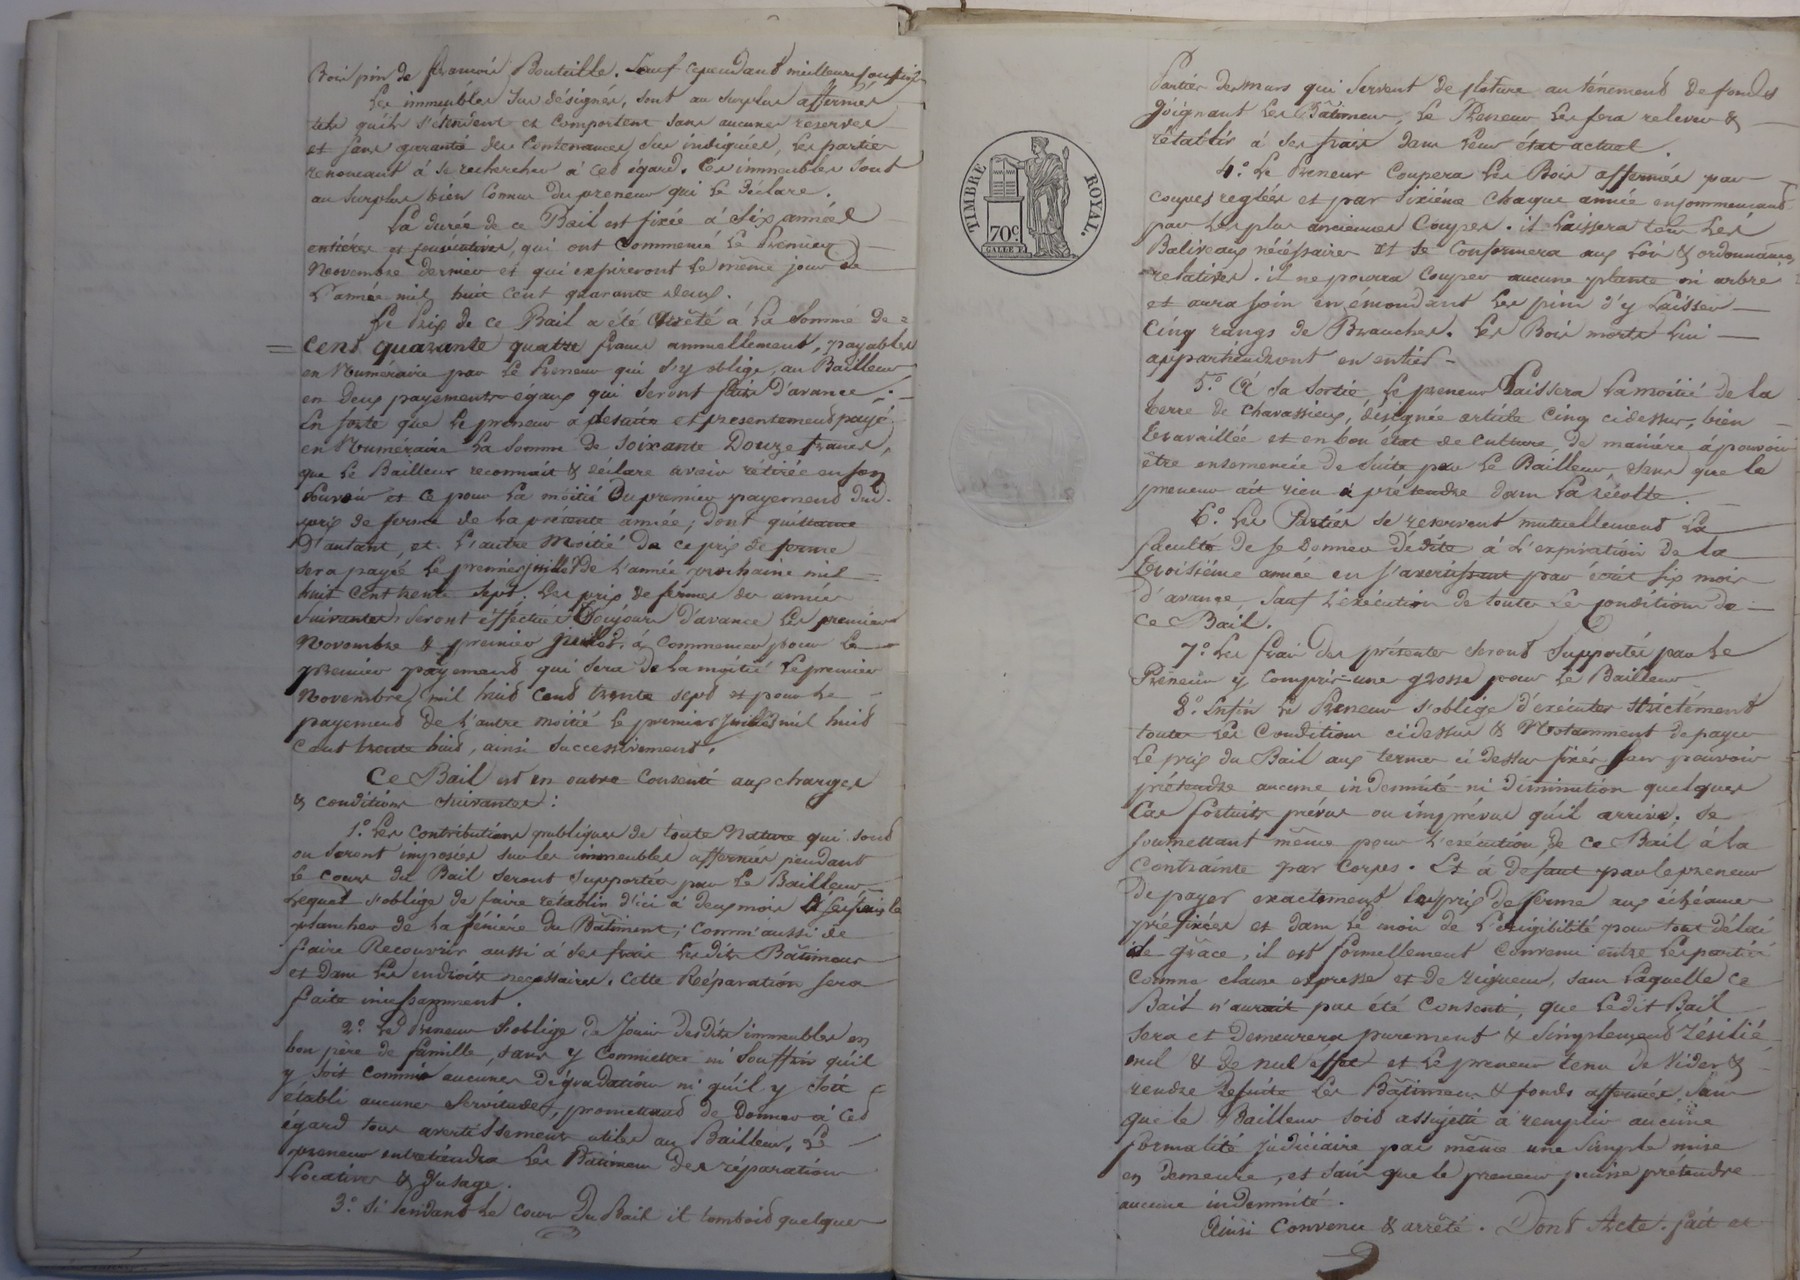 Bois pin de françois Bouteille. Sauf cependant meilleurs confins
Les immeubles sus désignés, sont au surplus affermés
tels qu'ils s'étendent et comportent sans aucunes réserves
et sans garantie des contenances sus indiquées, les parties
renoncant à se rechercher à cet égard. Ces immeubles sont
au surplus bien connus du preneur qui le déclare.
La durée de ce Bail est fixée à six années
entières et consécutives, qui ont commencé le Premier
Novembre dernier et qui expireront le même jour de
L'année mil huit cent quarante deux.
Le Prix de ce Bail a été arrêté à la somme de =
cent quarante quatre francs annuellement, payables
en Numéraire par le Preneur qui s'y oblige, au Bailleur
en deux payements égaux qui seront faits d'avance ;
En sorte que le preneur a desuite et présentement payé
en Numéraire la somme de soixante Douze francs,
que le Bailleur reconnait & déclare avoir rétirée en son
pouvoir et ce pour la moitié du premier payement dud.
prix de ferme de la présente année ; dont quittance
D'autant, et L'autre Moitié de ce prix de ferme
sera payée le premier juillet de L'année prochaine mil
huit cent trente sept. Les prix de fermes des années
suivantes seront éfféctués toujours d'avance les premier
Novembre & premier juillet, à commencer pour le
premier payement qui sera de la moitié le premier
Novembre mil huit cent trente sept et pour le
payement de L'autre moitié le premier juillet mil huit
cent trente huit, ainsi successivement.
Ce Bail est en outre Consenti aux charges
& conditions suivantes :
1.° Les contributions publiques de toute Nature qui sont
ou seront imposées sur les immeubles affermés pendant
le cours du Bail seront supportées par le Bailleur
Lequel s'oblige de faire rétablir d'ici à deux mois à ses frais le
plancher de la fénière du Bâtiment ; comm'aussi de
faire Recouvrir aussi à ses frais lesdits Bâtimens
et dans les endroits necessaires. Cette Réparation sera
faite incessamment.
2.° Le Preneur s'oblige de Jouir desdits immeubles en
bon père de famille, sans y commettre ni souffrir qu'il
y soit commis aucunes dégradations ni qu'il y soit
établi aucunes servitudes, promettant de donner à cet
égard tous avertissemens utiles au Bailleur. Le
preneur entretiendra les Bâtimens des réparations
Locatives & d'usage.
3.° Si Pendant le cours du Bail il tomboit quelques
TIMBRE ROYAL.
70c
Parties des murs qui servent de cloture au ténement de fonds
joignant les Bâtimens, le Preneur les fera relever &
rétablir à ses frais dans leur état actuel.
4.° Le Preneur coupera les Bois affermés par
coupes reglées et par sixième chaque année en commencant
par les plus anciennes coupes. il laissera tous Les
Baliveaux nécéssaires et se conformera aux Lois & ordonnances
relatives. il ne pourra couper aucune plante ni arbre
et aura soin en émondant les pins d'y laisser
Cinq rangs de Branches. Les Bois morts lui
appartiendront en entier
5.° à sa sortie le preneur laissera la moitié de la
terre de chavassieux, désignée article cinq cidessus, bien
travaillée et en bon état de culture de manière à pouvoir
être ensemencée de suite par le Bailleur, sans que le
preneur ait rien à prétendre dans la récolte.
6.° Les Parties se réservent mutuellement la
faculté de se donner dédite à l'expiration de la
troisième année en s'avertissant par écrit six mois
d'avance, sauf l'exécution de toutes les conditions de
ce Bail.
7.° Les frais des présentes seront supportés par le
Preneur y compris une grosse pour le Bailleur
8.° Enfin le Preneur s'oblige d'exécuter strictement
toutes les Conditions cidessus & Notamment de payer
le prix du Bail aux termes ci dessus fixés sans pouvoir
prétendre aucune indemnité ni diminution quelques
Cas fortuits prévus ou imprévus qu'il arrive, se
soumettant même pour L'exécution de ce Bail à la
Contrainte par Corps. Et à défaut par le preneur
de payer exactement les prix de ferme aux échéances
préfixées et dans le mois de L'exigibilité pour tout délai
de grâce, il est formellement convenu entre les parties
comme clause expresse et de rigueur, sans laquelle ce
Bail n'aurait pas été consenti, que ledit Bail
sera et demeurera purement & simplement résilié
nul & de nul effet et le preneur tenu de vider &
rendre desuite les Bâtimens & fonds affermés, sans
que le Bailleur soit assujeti à remplir aucune
formalité judiciaire pas même une simple mise
en demeure, et sans que le preneur puisse prétendre
aucune indemnité.
Ainsi Convenu & arrêté. Dont Acte. fait et